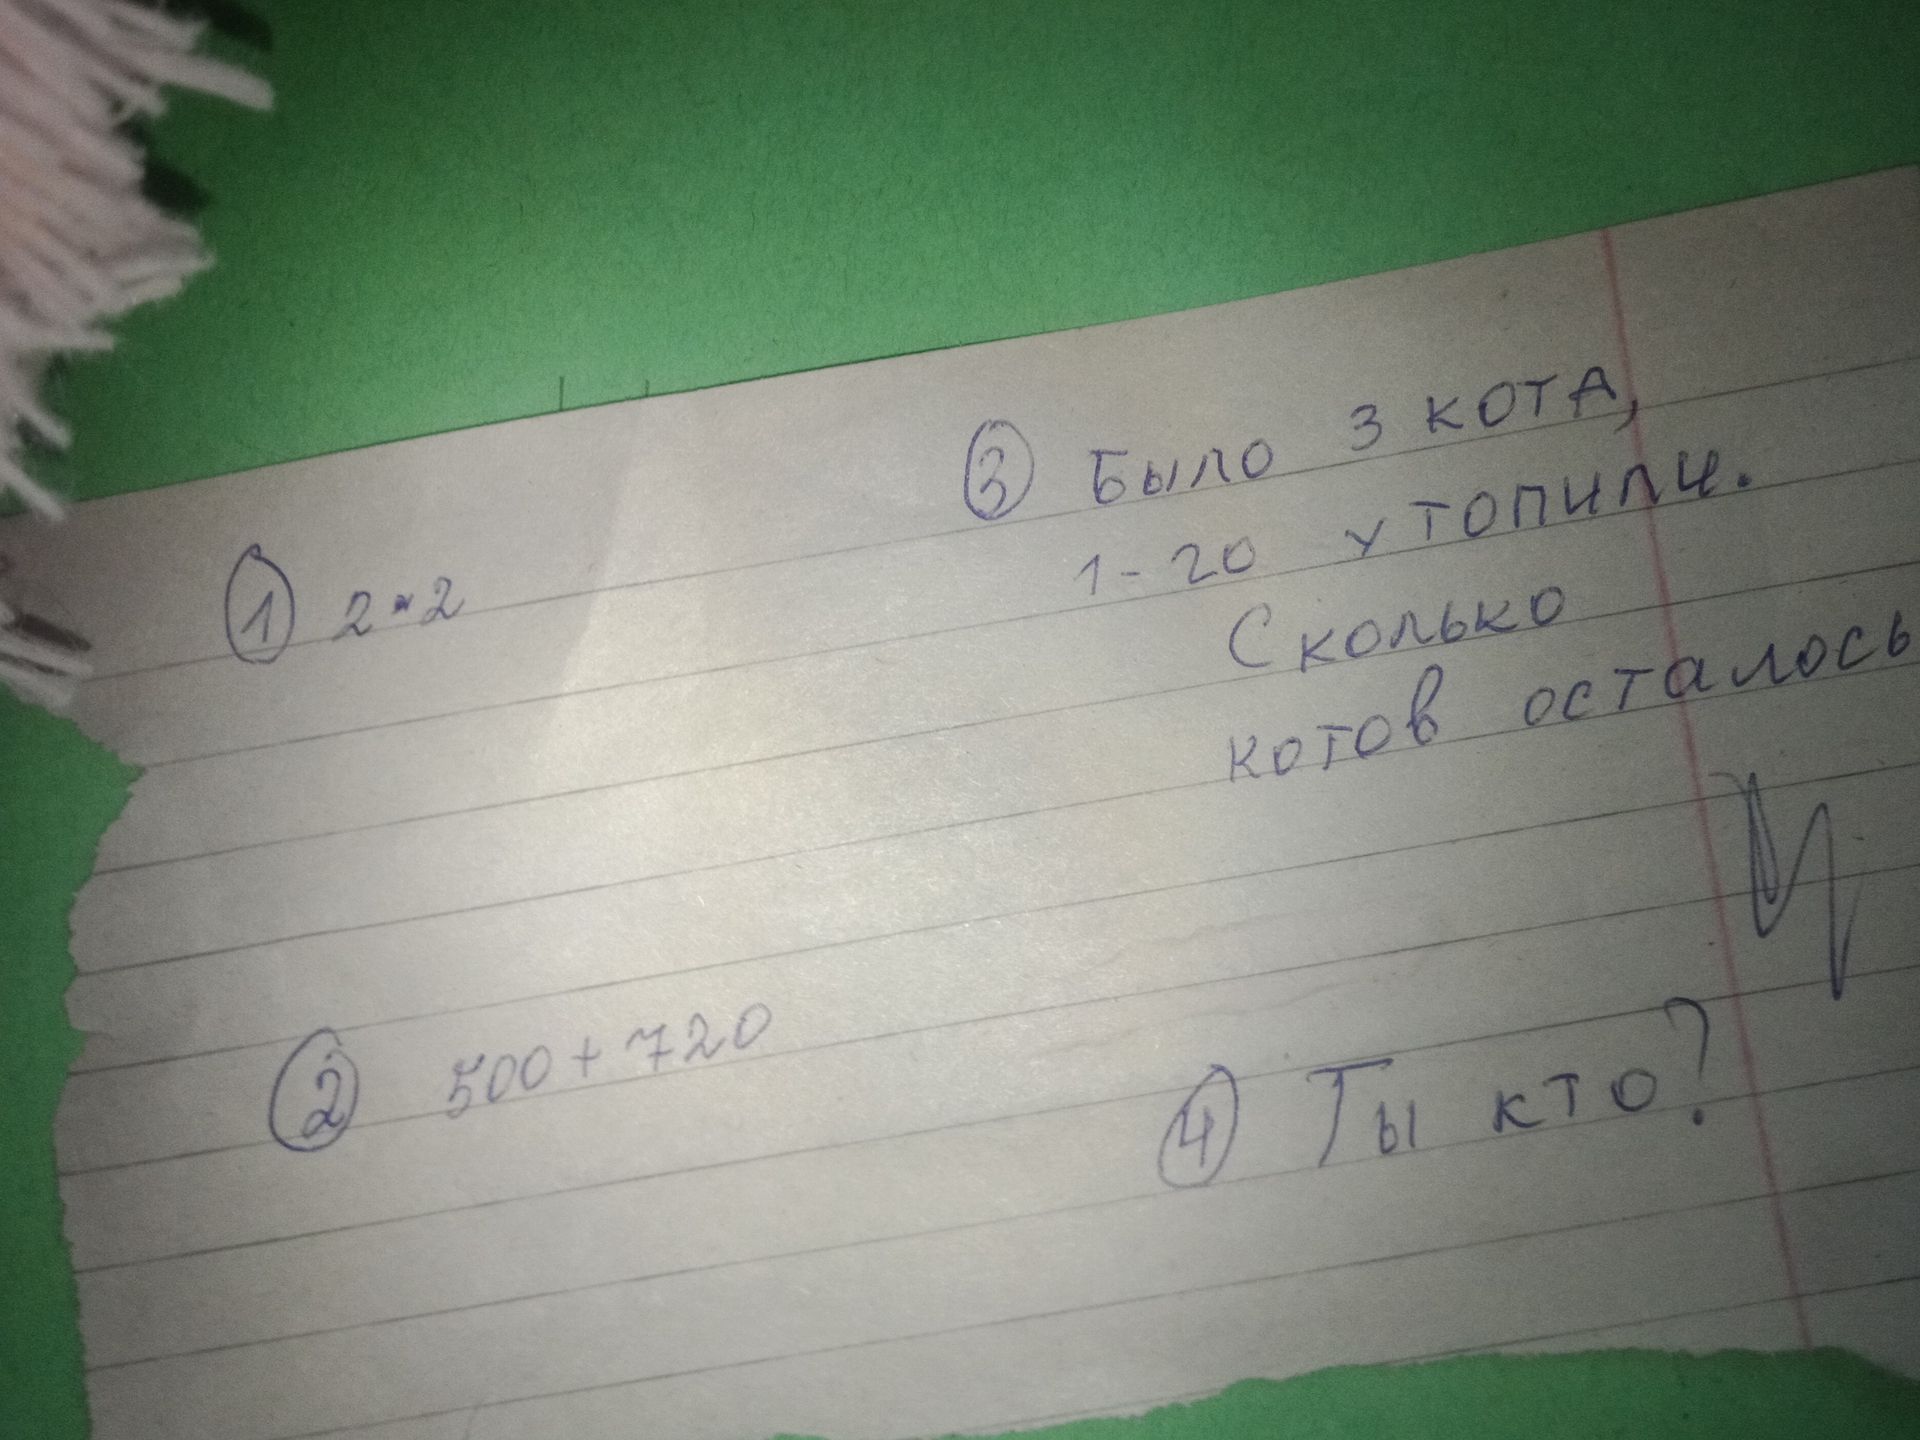 ① 2 · 2
② 500 + 720
③ Было 3 кота,
1-го утопили.
Сколько
котов осталось
④ Ты кто?